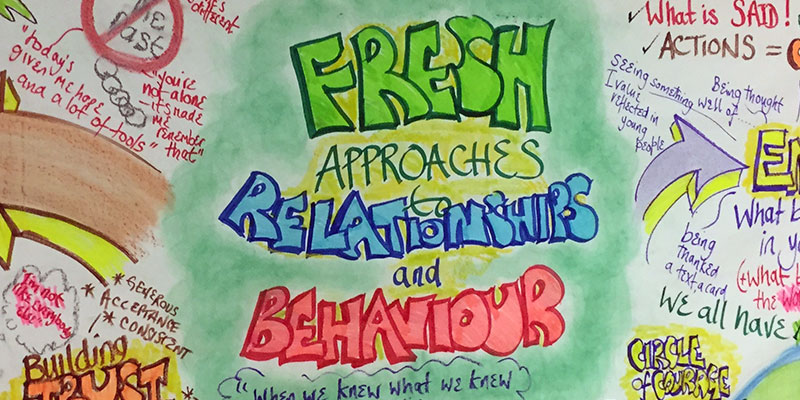 the
past
"today's
given me hope
and a lot of tools"
"you're
not alone
- it's made
me
remember
that"
FRESH
APPROACHES
to
RELATIONSHIPS
and
BEHAVIOUR
"when we knew what we knew
I'm not
like everybody
else
* GENEROUS
* ACCEPTANCE
* CONSISTENT
Building
TRUST
✓ What is SAID!
✓ ACTIONS =
seeing something
I value
reflected in
young
people
Being thought
well of
being
thanked
a text, a card
What b
in y
(+ what
the
We all have
CIRCLE
of COURAGE